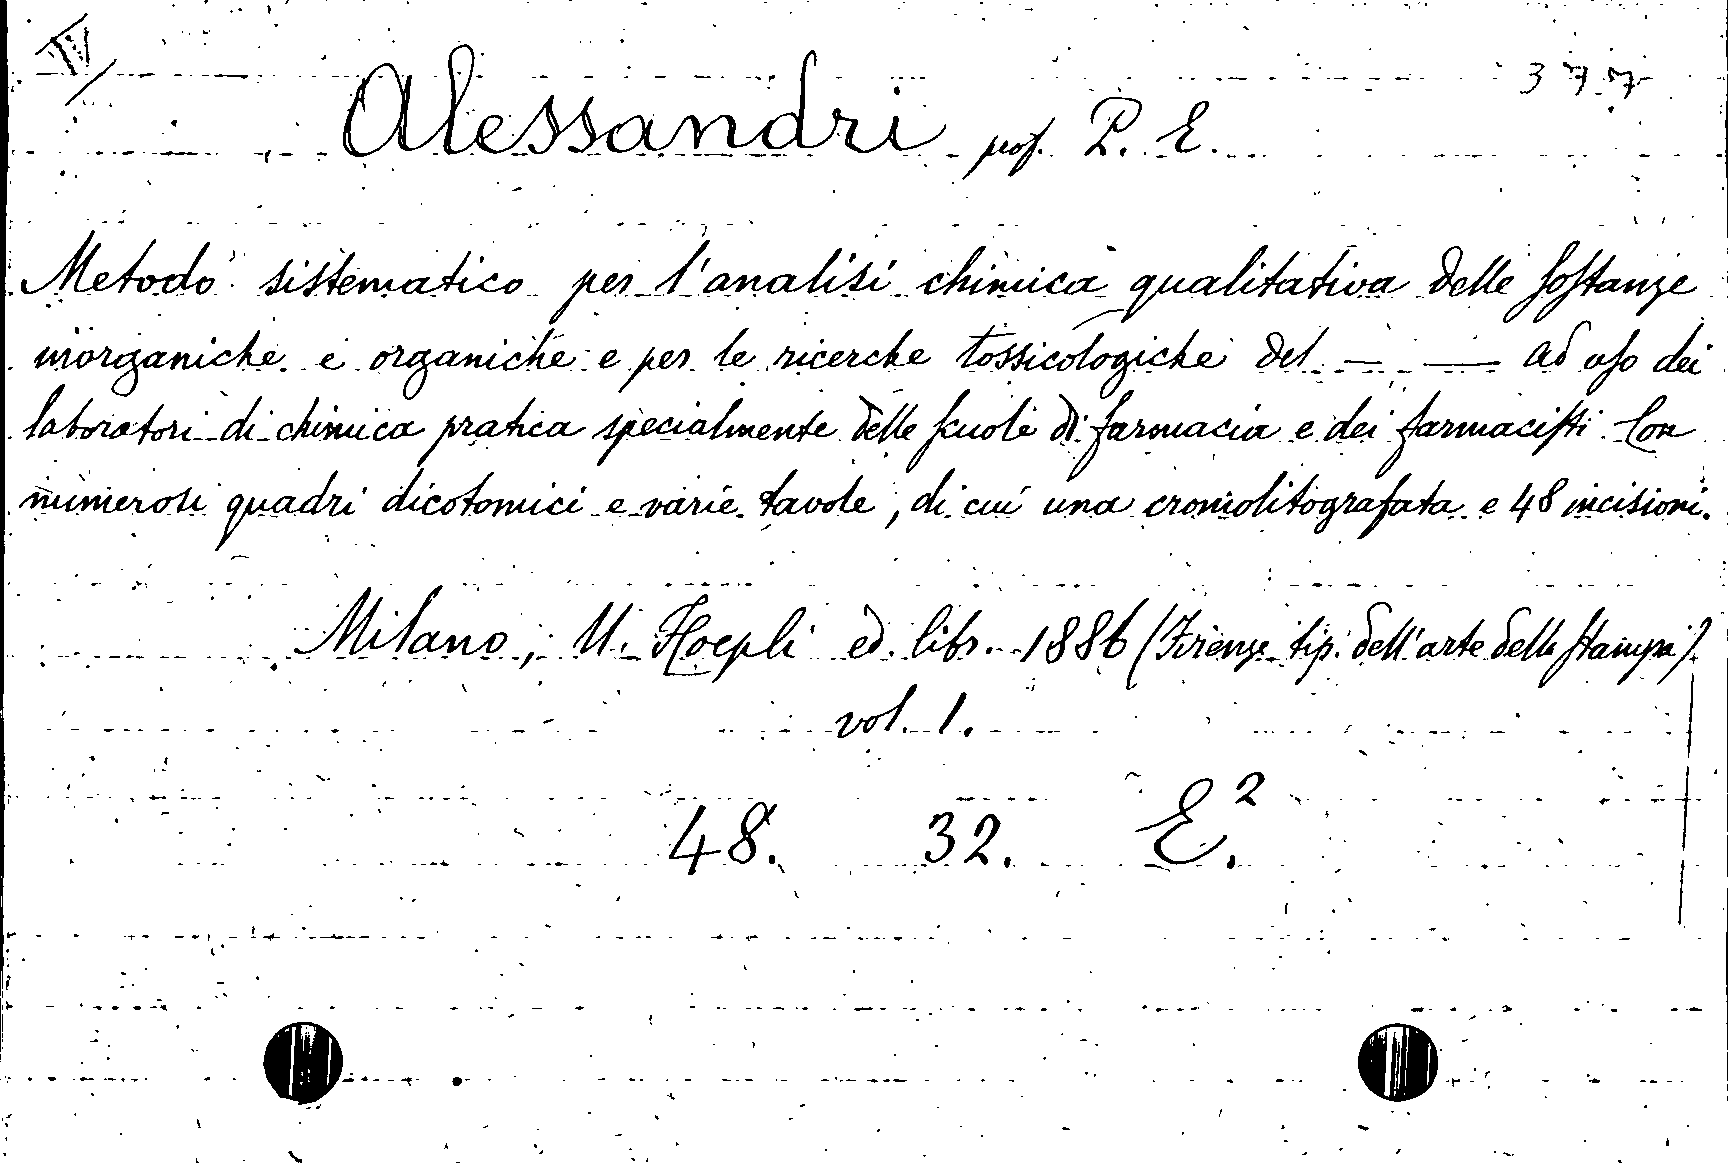 IV
377
Alessandri prof. P. E.
Metodo sistematico per l'analisi chimica qualitativa delle sostanze
inorganiche e organiche e per le ricerche tossicologiche del — — ad uso dei
laboratori di chimica pratica specialmente delle scuole di farmacia e dei farmacisti. Con
numerosi quadri dicotomici e varie tavole, di cui una cromolitografata e 48 incisioni.
Milano, U. Hoepli ed. libr. 1886 (Firenze tip. dell'arte della stampa).
vol. 1.
48. 32. E.²